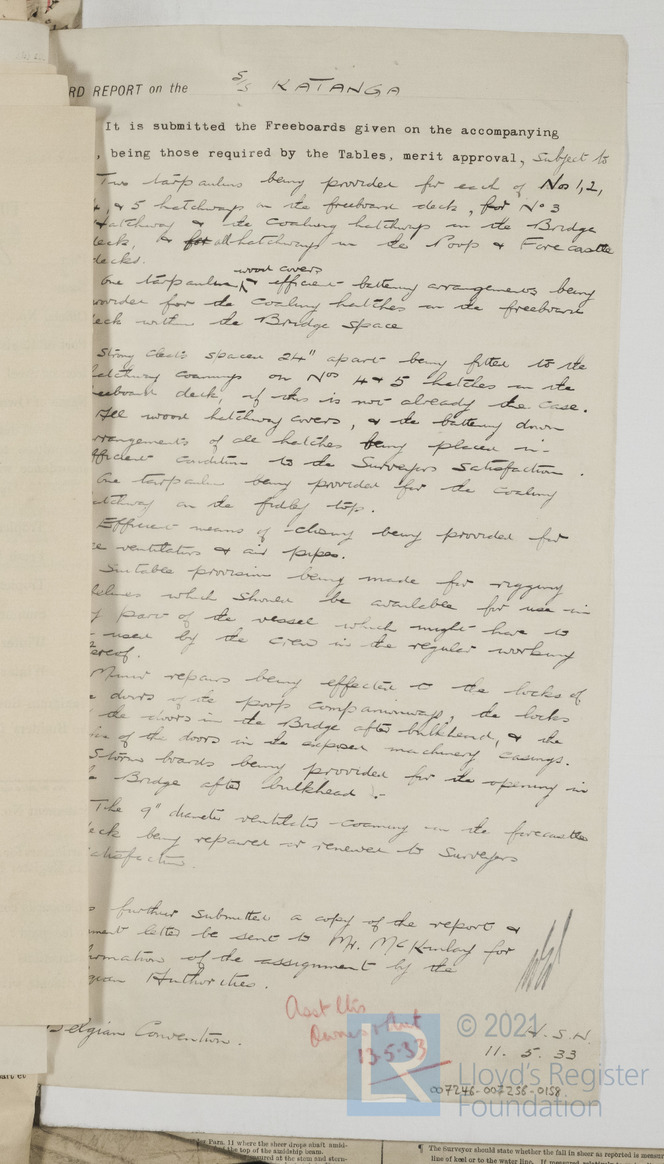 RD REPORT on the S/S KATANGA
It is submitted the Freeboards given on the accompanying
, being those required by the Tables, merit approval, subject to
Two tarpaulins being provided for each of Nos 1, 2,
4, & 5 hatchways on the freeboard deck, for No 3
hatchway & the coaling hatchways in the Bridge
deck, & for all hatchways in the Poop & Forecastle
decks.
wood covers
One tarpaulin & efficient battening arrangements being
provided for the coaling hatches on the freeboard
deck within the Bridge space
Strong cleats spaced 24" apart being fitted to the
hatchway coamings on Nos 4 & 5 hatches on the
freeboard deck, if this is not already the case.
All wood hatchway covers, & the battening down
arrangements of all hatches being placed in
efficient condition to the Surveyors satisfaction.
One tarpaulin being provided for the coaling
hatchway on the fidley top.
Efficient means of closing being provided for
ventilators & air pipes.
Suitable provision being made for rigging
lifelines which should be available for use in
part of the vessel which might have to
used by the crew in the regular working
ereof.
Minor repairs being effected to the locks of
doors of the poop companionways, the locks
the doors in the Bridge after bulkhead, & the
of the doors in the exposed machinery casings.
Storm boards being provided for the opening in
Bridge after bulkhead.
The 9" diameter ventilator coaming on the forecastle
deck being repaired or renewed to Surveyors
satisfaction.
further submitted a copy of the report &
letter be sent to Mr. McKinlay for
information of the assignment by the
gian Authorities.
Belgian Convention.
13.5.33
V.S.H.
11. 5. 33
007246-007256-0158
© 2021
LR
Lloyd's Register
Foundation
Para. 11 where the sheer drops abaft amid-
the top of the amidship beam.
sured at the stem and stern-
¶ The Surveyor should state whether the fall in sheer as reported is measur
line of keel or to the water line.